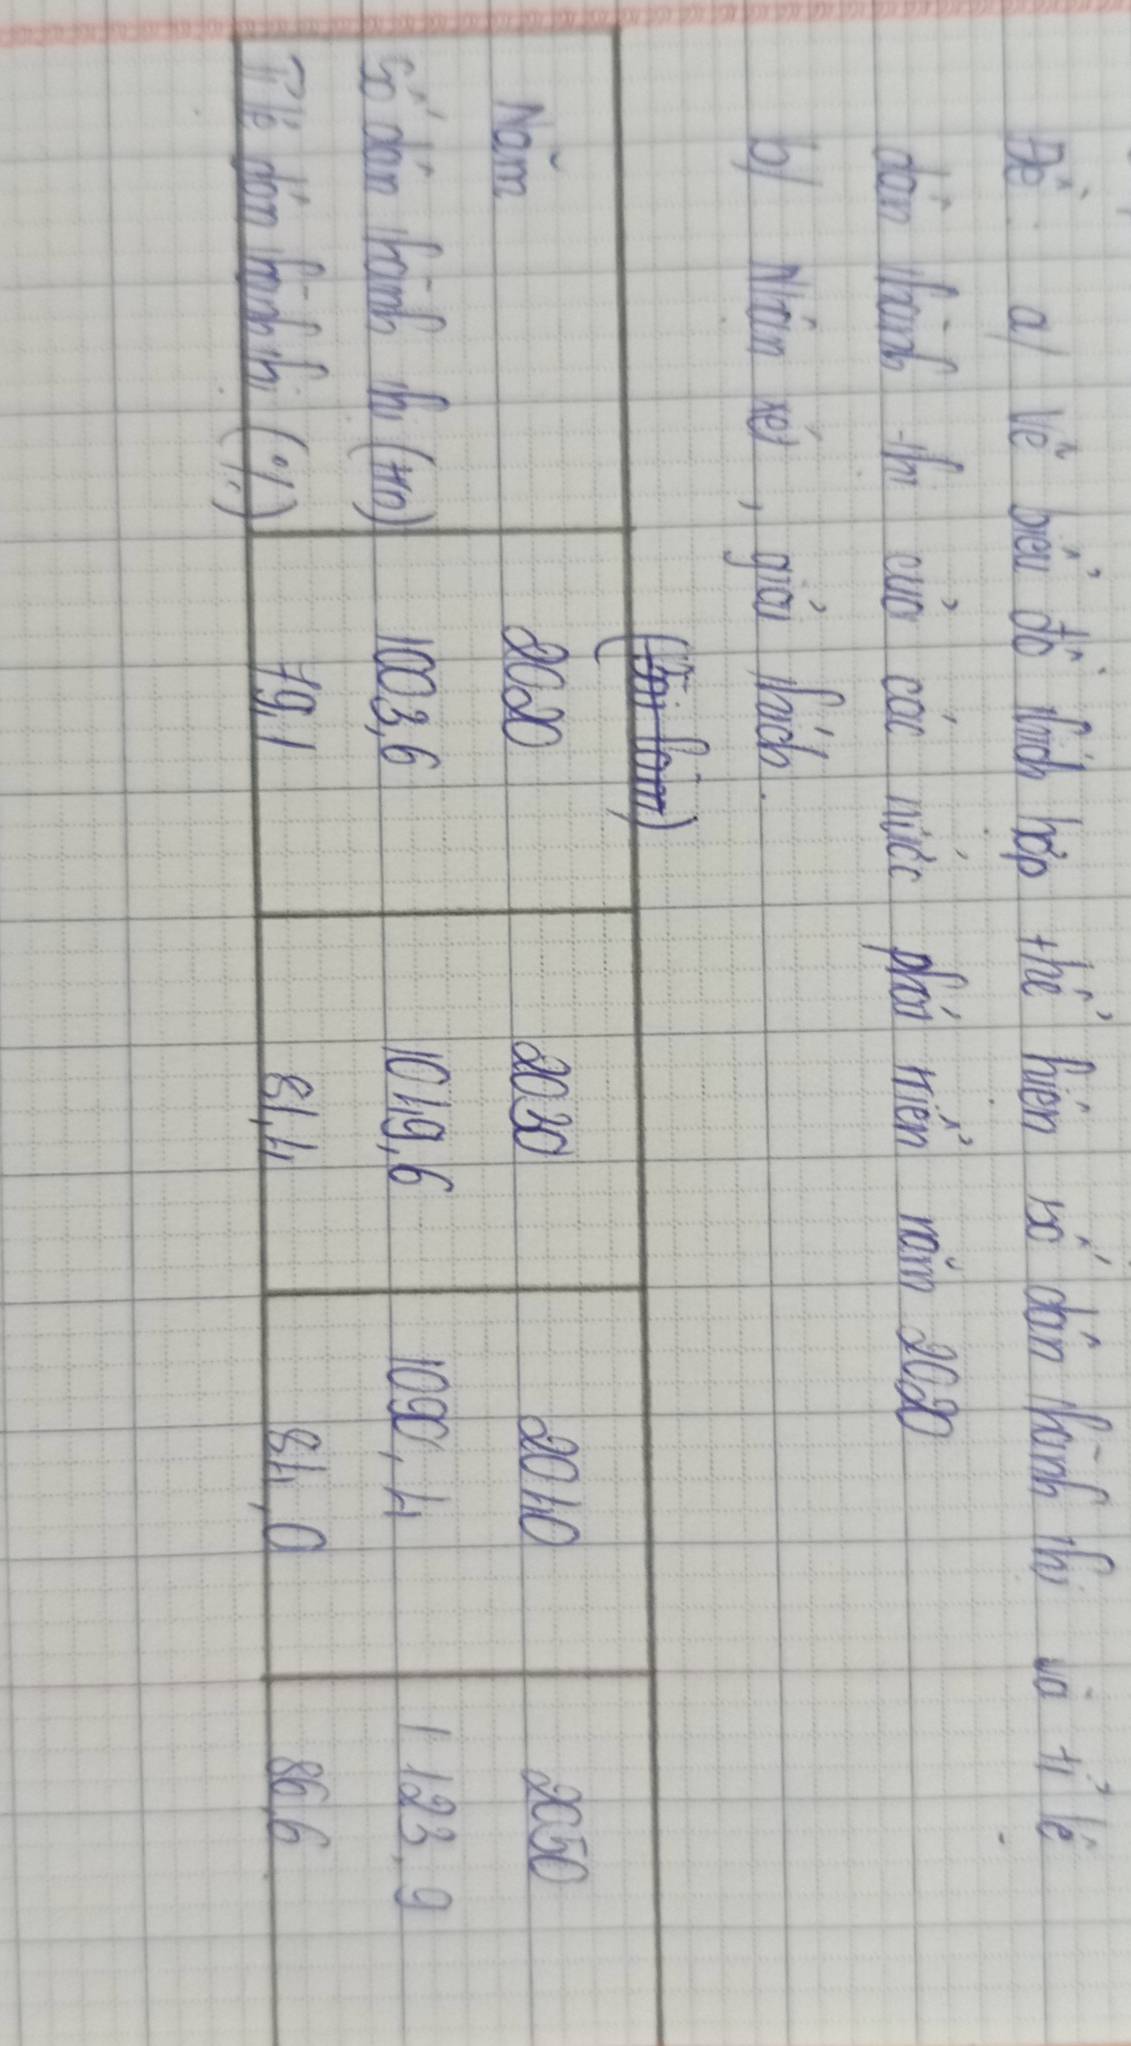 Đề. a/ Vẽ biểu đồ thích hợp thể hiện số dân thành thị và tỉ lệ
dân thành thị của các nước phát triển năm 2020
b/ Nhận xét, giải thích.
Năm 2020 2030 2040 2050
Số dân thành thị (tr.n) 1003,6 1049,6 1090,4 1123,9
Tỉ lệ dân thành thị (%) 79,1 81,4 84,0 86,6